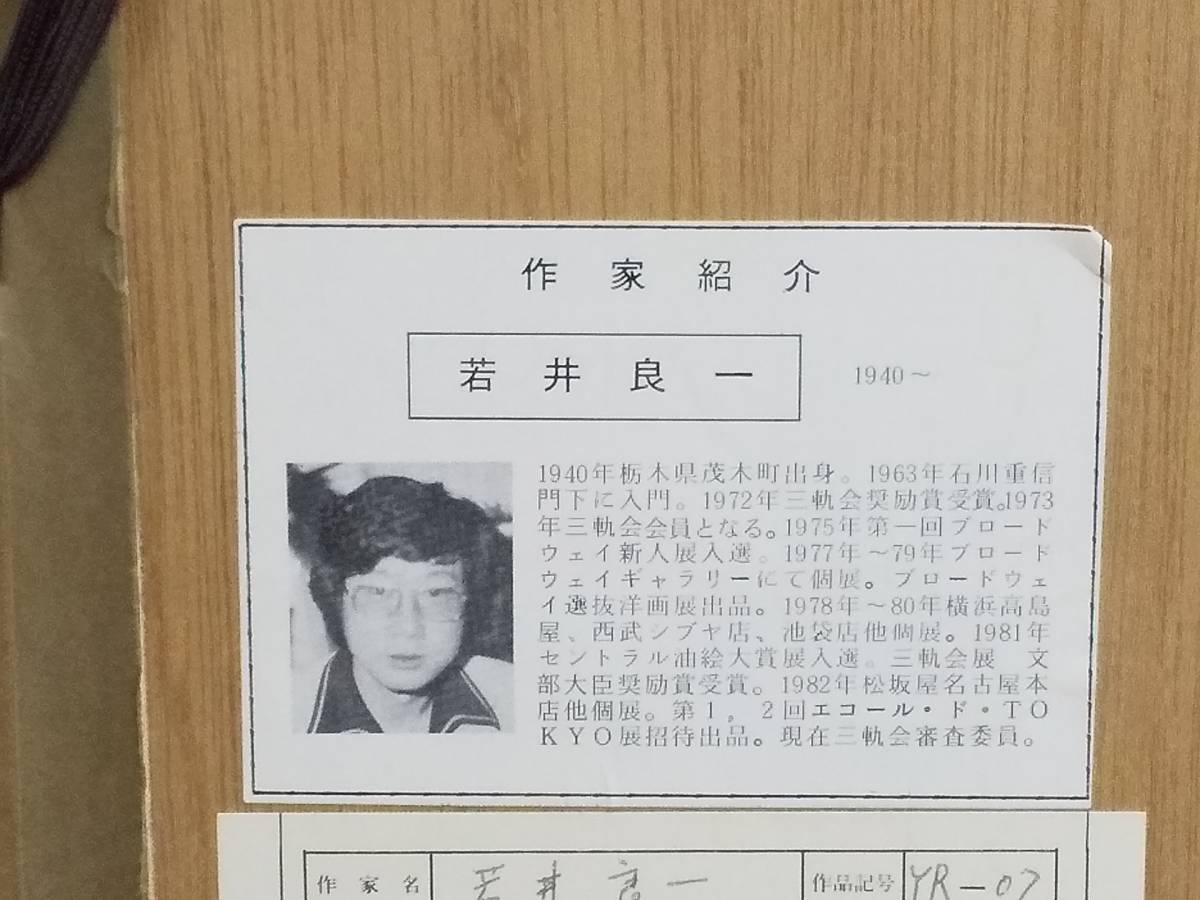 作家紹介
若井良一 1940~
1940年栃木県茂木町出身。1963年石川重信
門下に入門。1972年三軌会奨励賞受賞。1973
年三軌会会員となる。1975年第一回ブロード
ウェイ新人展入選。1977年~79年ブロード
ウェイギャラリーにて個展。ブロードウェ
イ選抜洋画展出品。1978年~80年横浜高島
屋、西武シブヤ店、池袋店他個展。1981年
セントラル油絵大賞展入選。三軌会展 文
部大臣奨励賞受賞。1982年松坂屋名古屋本
店他個展。第1,2回エコール・ド・TO
KYO展招待出品。現在三軌会審査委員。
作家名 若井良一 作品記号 YR-07